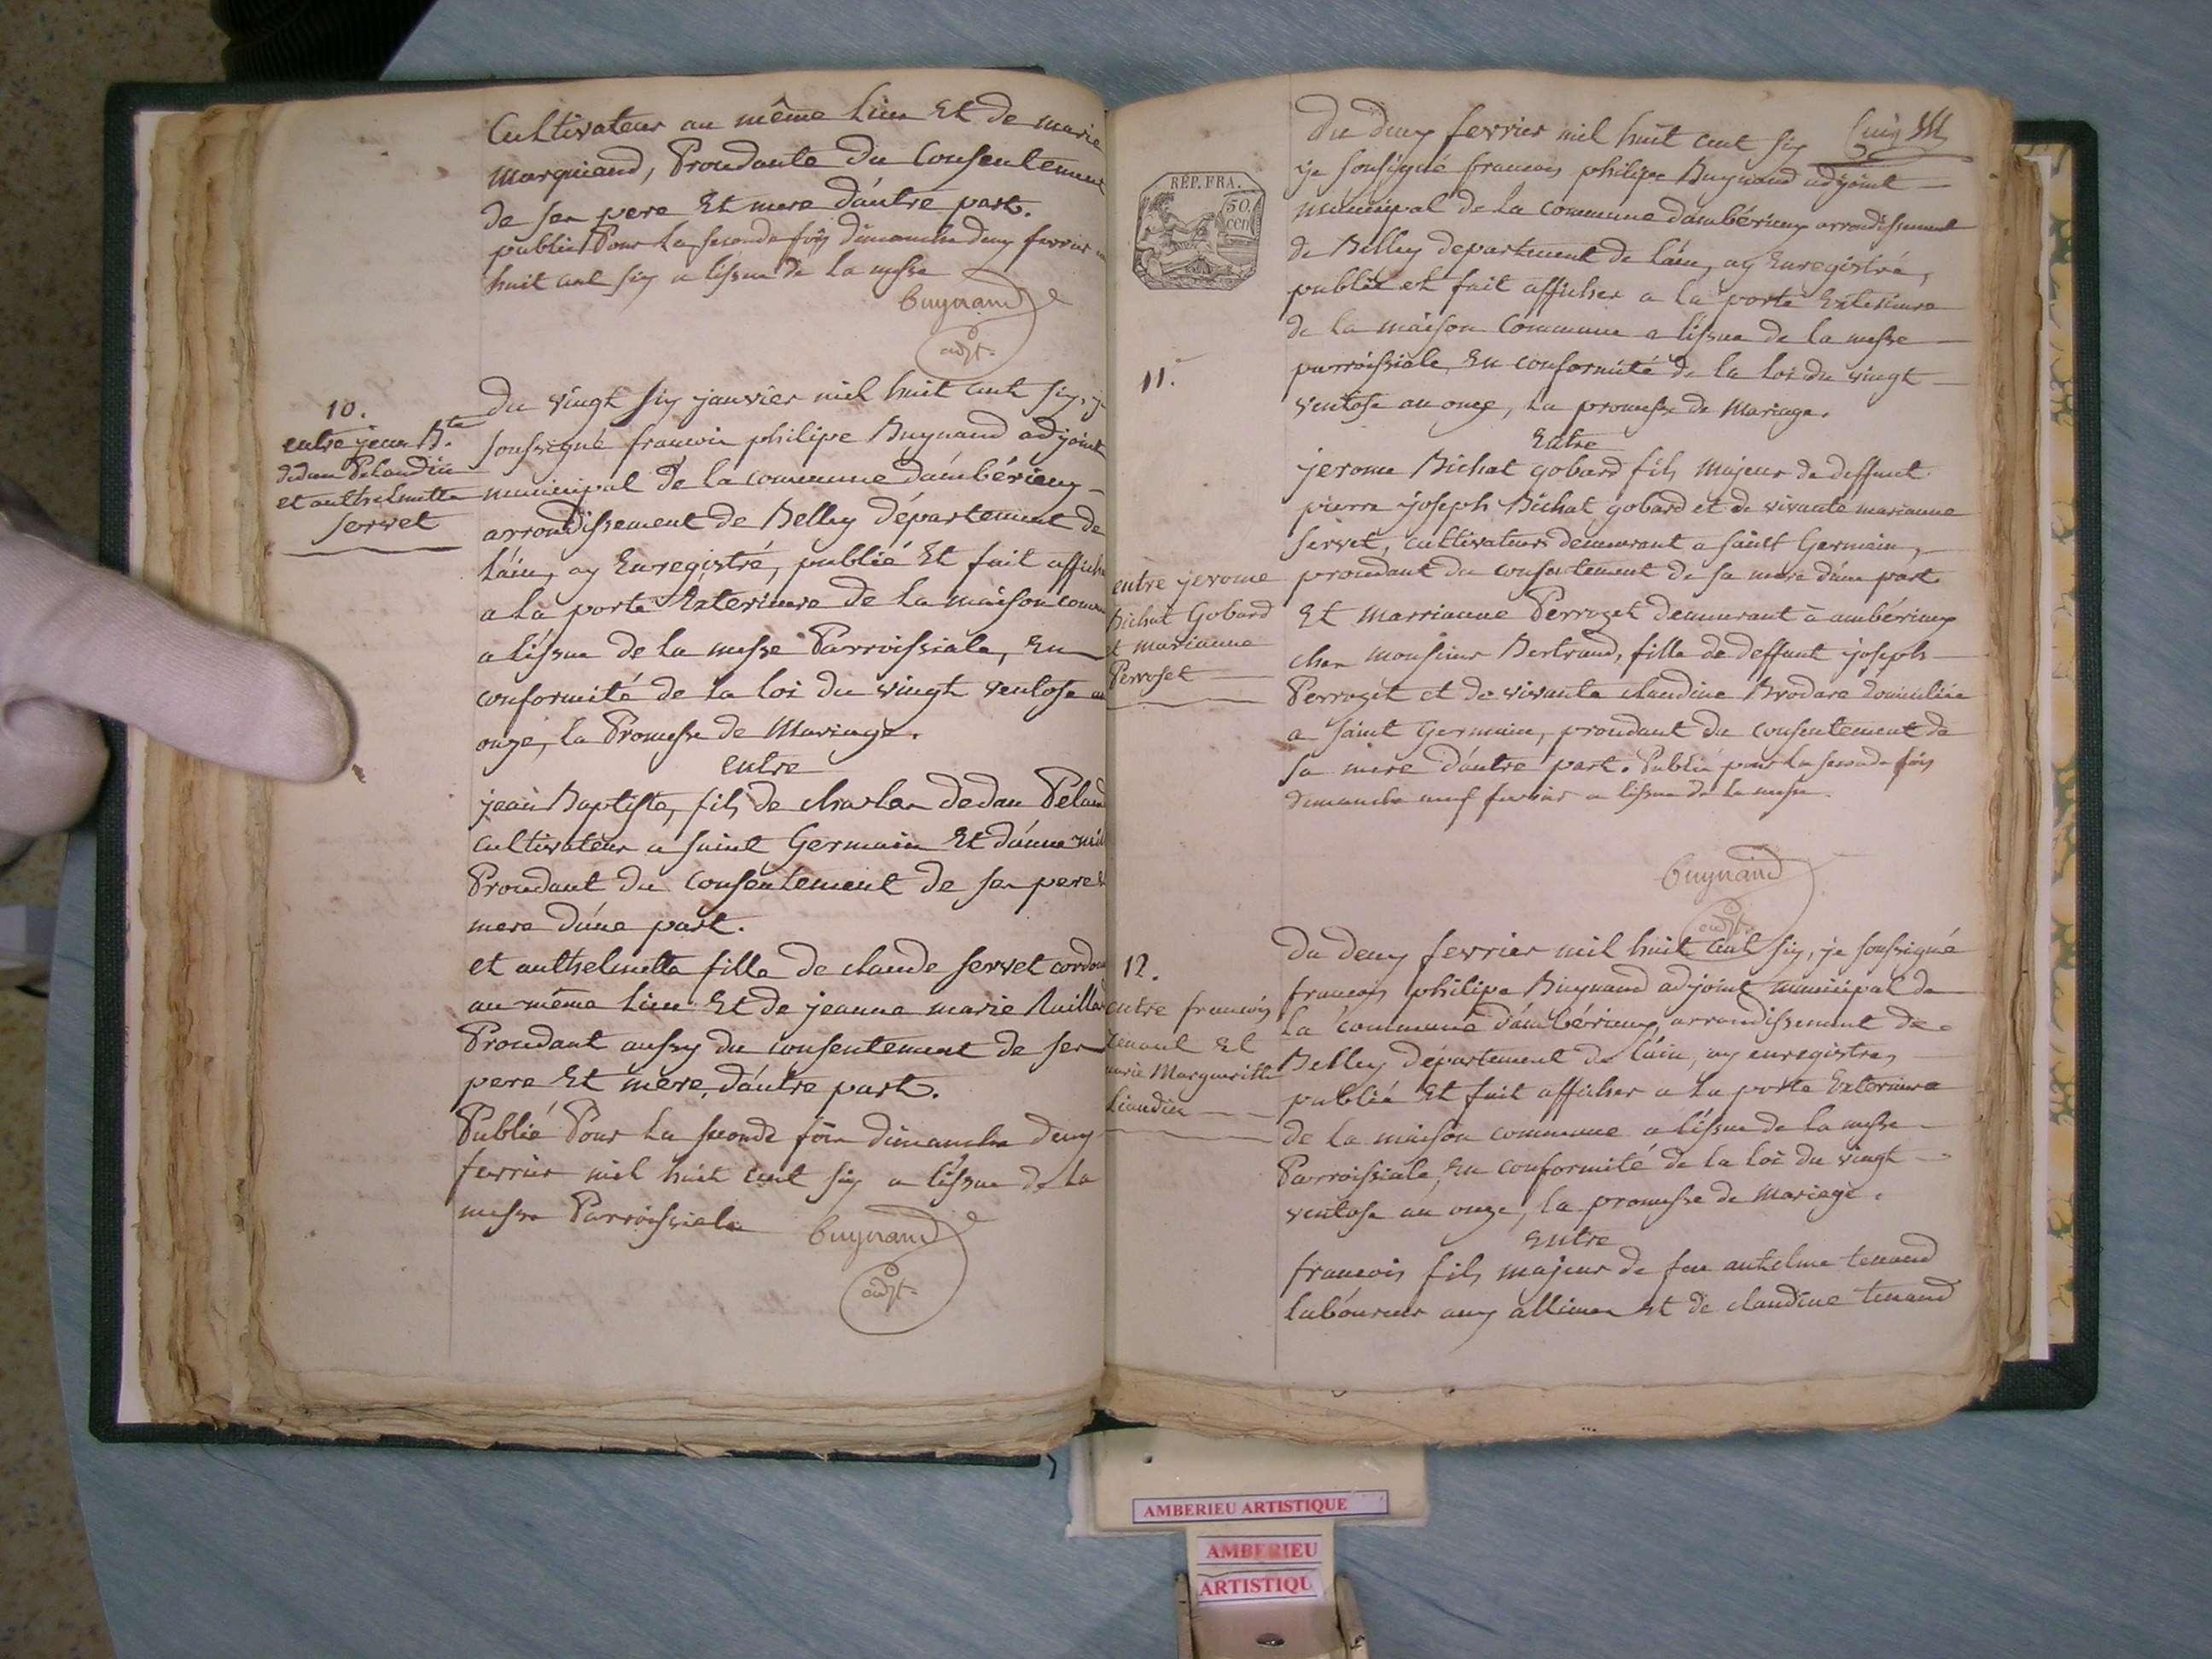 Cultivateur au même lieu Et de marie
Marquiand, Proudante du Consentement
de ses pere Et mere d'autre part.
publié Pour la seconde fois dimanche deux fevrier
huit cent six a lissue de la messe
Buynand
adjt.
10.
entre jean Bte
dedan Pelaudin
et anthelmette
servet
Du vingt six janvier mil huit cent six, je
soussigné francois philipe Buynand adjoint
municipal de la commune d'ambérieux
arrondissement de Belley département de
l'ain, ay Enregistré, publié Et fait affiche
a la porte Exterieure de la maison comm
a lissue de la messe Parroissiale, En
conformité de la loi du vingt ventose an
onze, la Promesse de Mariage.
entre
jean Baptiste, fils de charles dedan Pelaud
Cultivateur a saint Germain Et d'anne
Proudant du Consentement de ses pere Et
mere d'une part.
et anthelmette fille de claude servet cordon
au même lieu Et de jeanne marie
Proudant aussy du consentement de ses
pere Et mere, d'autre part.
Publié Pour la seconde fois dimanche deux
fevrier mil huit cent six a lissue de la
messe Parroissiale
Buynand
adjt.
REP. FRA.
50.
cen
Du deux fevrier mil huit cent six
je soussigné francois philipe Buynand adjoint
municipal de la commune dambérieux arrondissement
de Belley departement de l'ain, ay Enregistré,
publié et fait afficher a la porte Exterieure
de la maison Commune a lissue de la messe
parroissiale, En conformité de la loi du vingt
ventose an onze, la promesse de Mariage.
11.
Entre
entre jerome
Bichat Gobard
et marianne
Perroset
jerome Bichat gobard fils majeur de deffunt
pierre joseph Bichat gobard et de vivante marianne
servet, cultivateurs demeurant a saint Germain,
proudant du consentement de sa mere d'une part
Et marrianne Perrozet demeurant à ambérieux
chez monsieur Bertrand, fille de deffunt joseph
Perrozet et de vivante claudine Brodare domiciliée
a saint Germain, proudant du consentement de
sa mere d'autre part. Publié pour la seconde fois
dimanche neuf fevrier a lissue de la messe
Buynand
adjt.
12.
entre francois
Tenand Et
marie Margueritte
Liaudin
Du deux fevrier mil huit cent six, je soussigné
francois philipe Buynand adjoint municipal de
la commune d'ambérieux, arrondissement de
Belley département de l'ain, ay enregistré,
publié Et fait afficher a la porte Exterieure
de la maison commune a lissue de la messe
Parroissiale, En conformité de la loi du vingt
ventose an onze, la promesse de Mariage.
Entre
francois fils majeur de feu anthelme tenand
laboureur aux allimes Et de claudine tenand
AMBERIEU ARTISTIQUE
AMBERIEU
ARTISTIQU